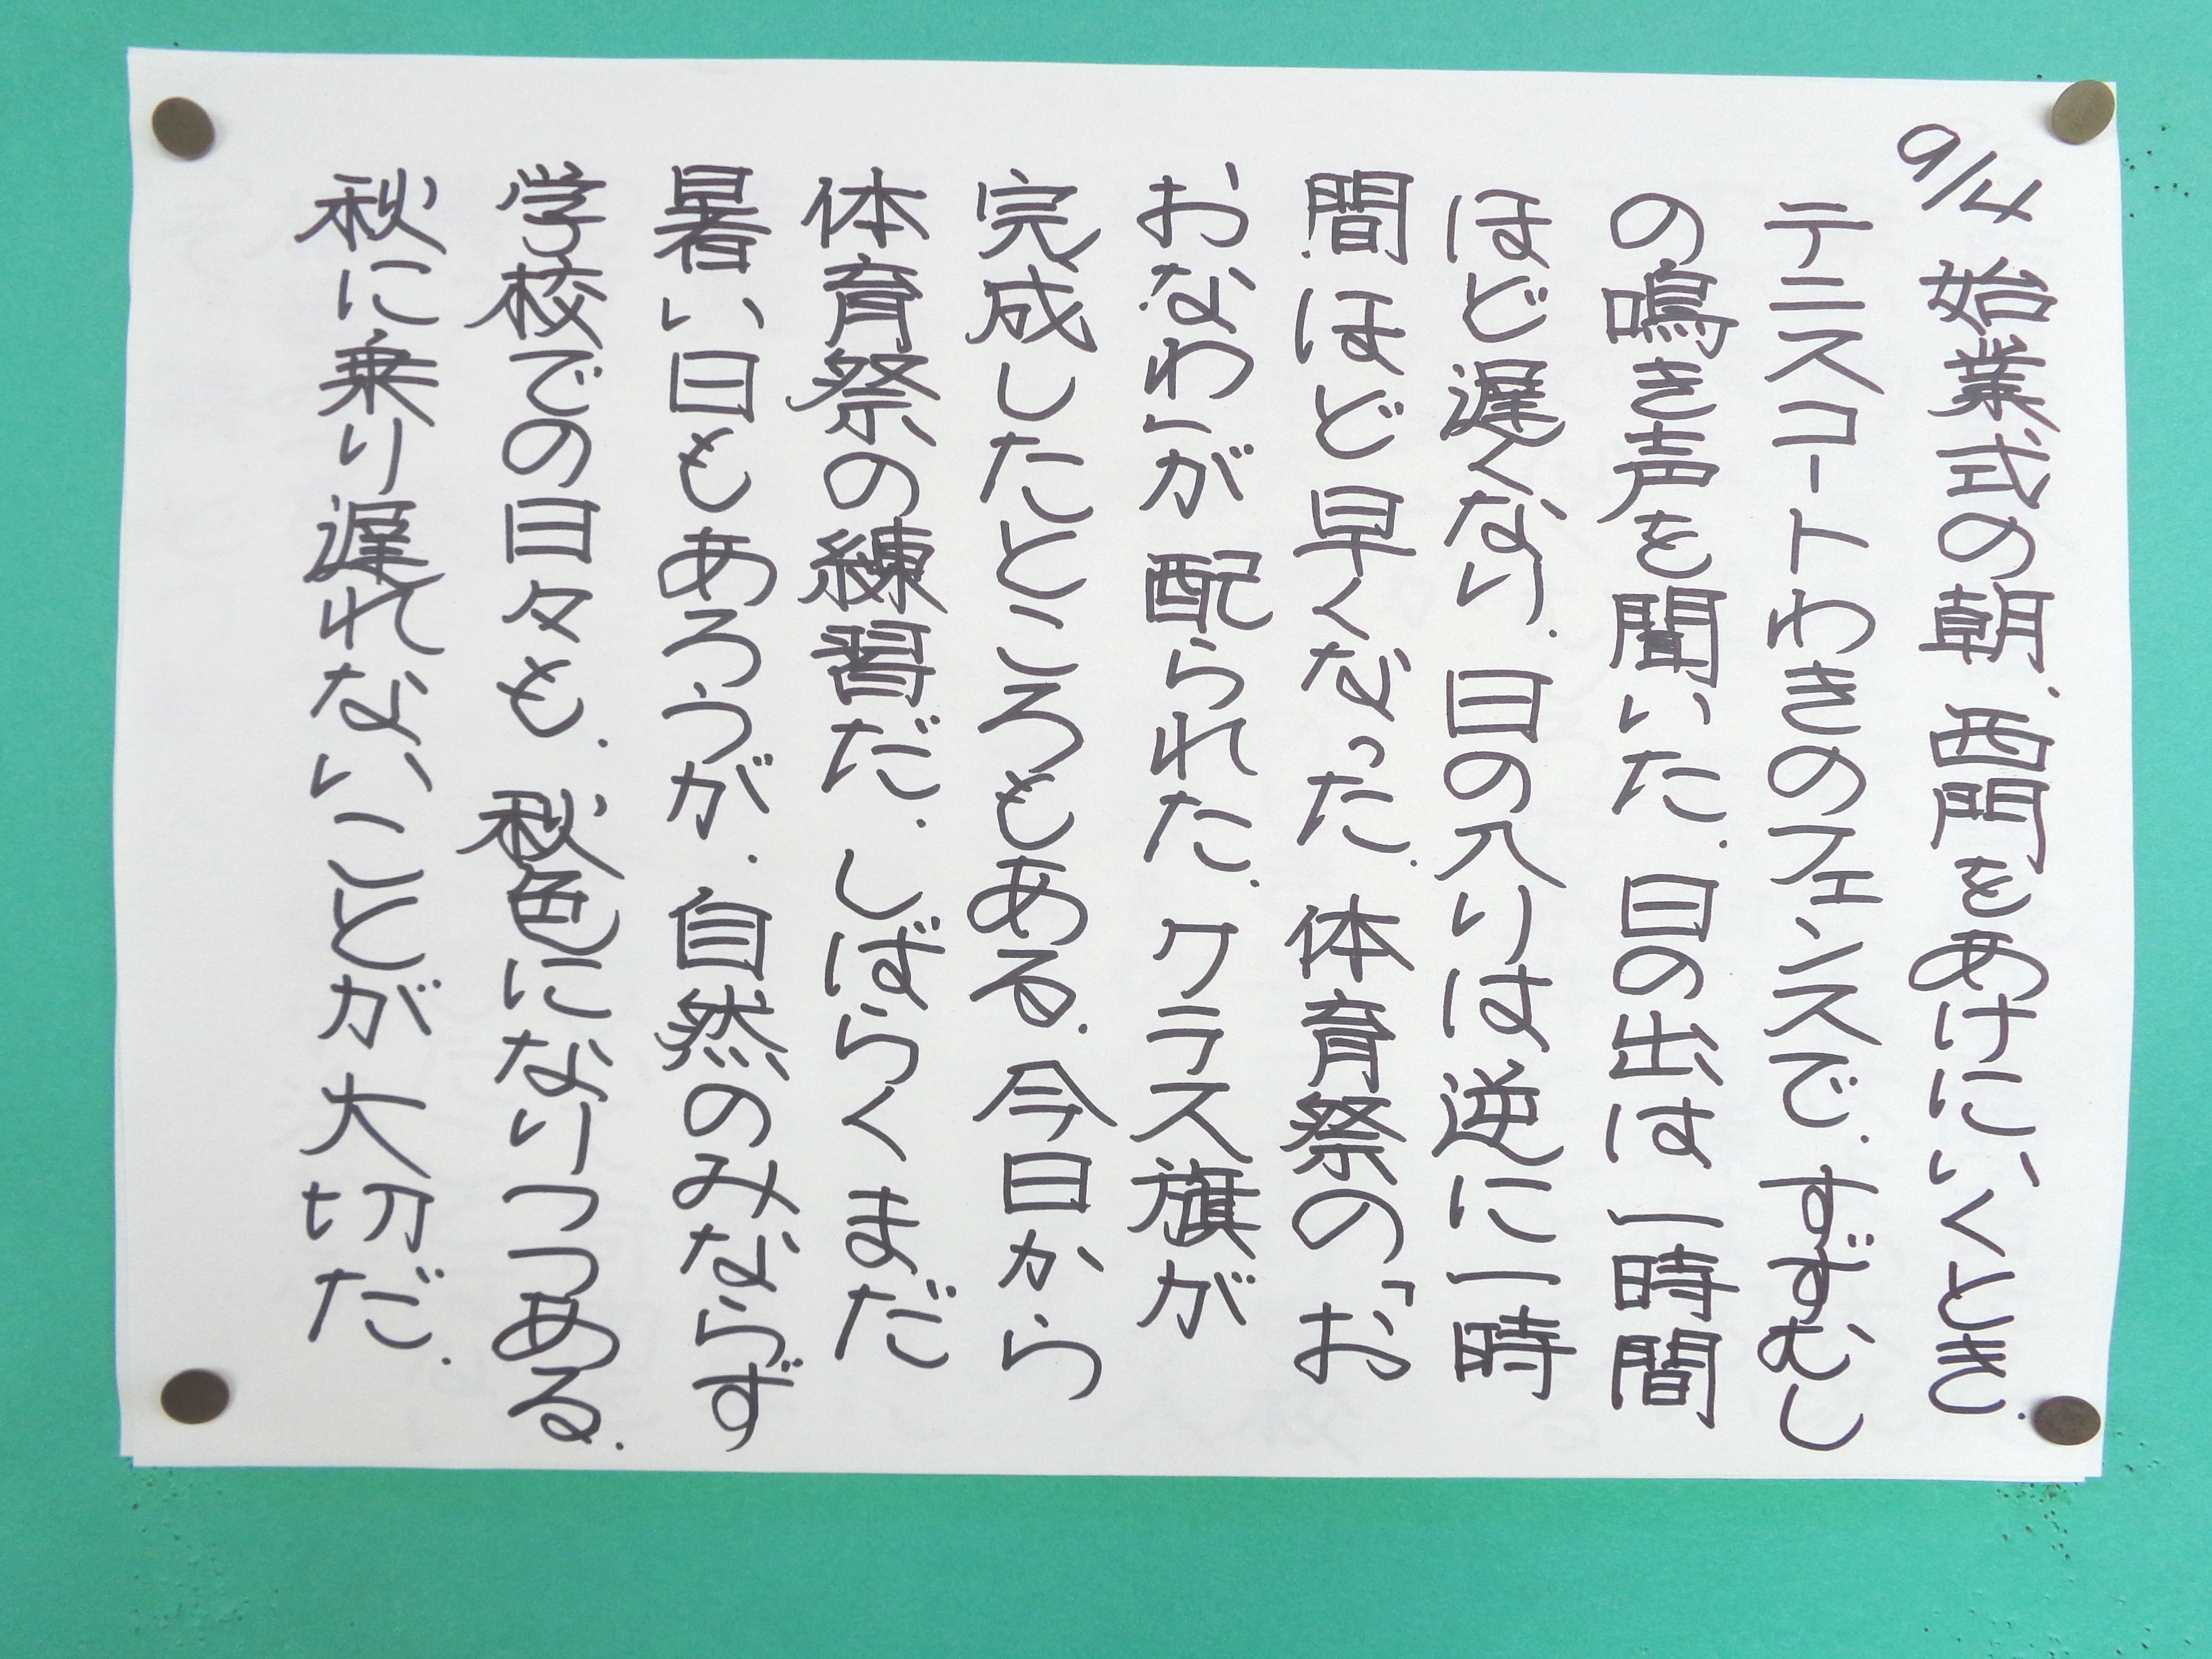 9/4 始業式の朝、西門をあけにいくとき、
テニスコートわきのフェンスで、すずむし
の鳴き声を聞いた。日の出は一時間
ほど遅くなり、日の入りは逆に一時
間ほど早くなった。体育祭の「お
おなわ」が配られた。クラス旗が
完成したところもある。今日から
体育祭の練習だ。しばらくまだ
暑い日もあろうが、自然のみならず
学校での日々も、秋色になりつつある。
秋に乗り遅れないことが大切だ。